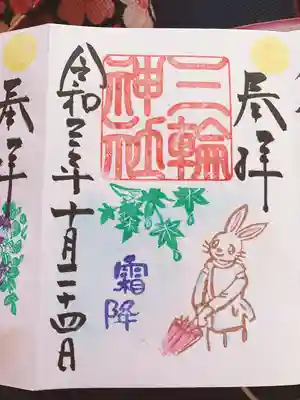 奉拝
三輪
神社
令和三年十月二十四日
霜降
奉拝